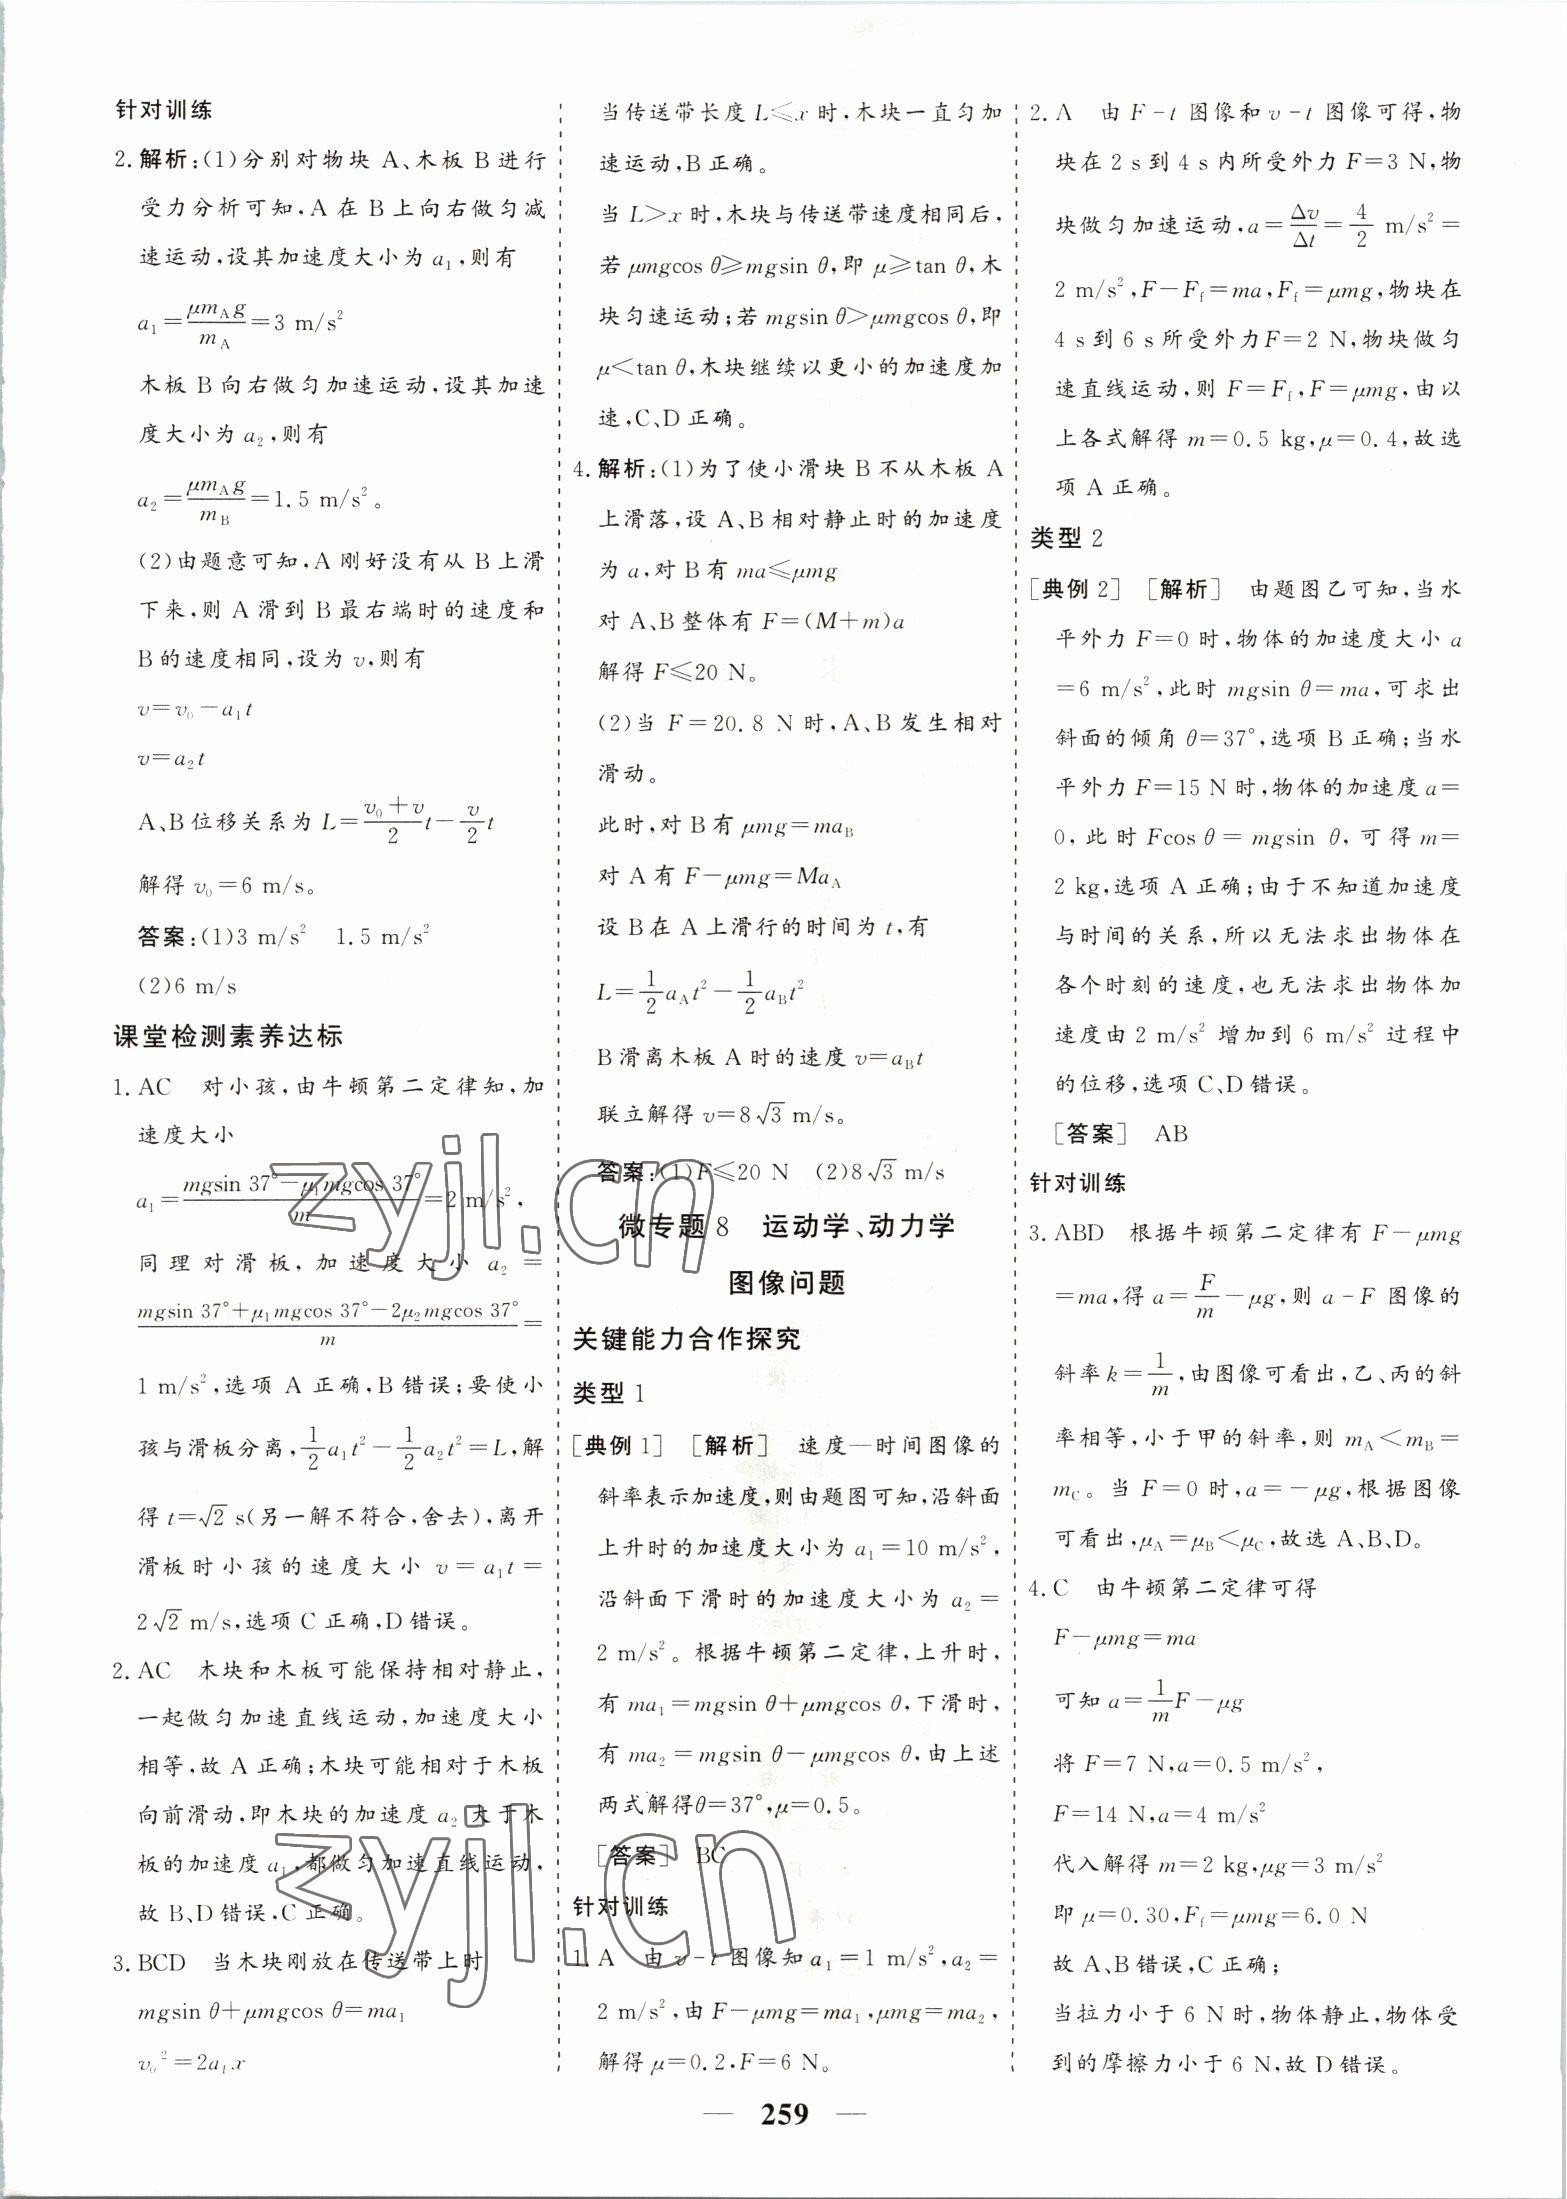 针对训练
2.解析:(1)分别对物块 A、木板 B 进行
受力分析可知,A 在 B 上向右做匀减
速运动,设其加速度大小为 a₁,则有
a₁=μm_A g/m_A=3 m/s²
木板 B 向右做匀加速运动,设其加速
度大小为 a₂,则有
a₂=μm_A g/m_B=1.5 m/s²。
(2)由题意可知,A 刚好没有从 B 上滑
下来,则 A 滑到 B 最右端时的速度和
B 的速度相同,设为 v,则有
v=v₀-a₁t
v=a₂t
A、B 位移关系为 L=(v₀+v)/2 t-v/2 t
解得 v₀=6 m/s。
答案:(1)3 m/s² 1.5 m/s²
(2)6 m/s
课堂检测素养达标
1. AC 对小孩,由牛顿第二定律知,加
速度大小
a₁=(mgsin 37°-μ₁mgcos 37°)/m=2 m/s²,
同理对滑板,加速度大小 a₂=
(mgsin 37°+μ₁mgcos 37°-2μ₂mgcos 37°)/m=
1 m/s²,选项 A 正确,B 错误;要使小
孩与滑板分离,1/2 a₁t²-1/2 a₂t²=L,解
得 t=√2 s(另一解不符合,舍去),离开
滑板时小孩的速度大小 v=a₁t=
2√2 m/s,选项 C 正确,D 错误。
2. AC 木块和木板可能保持相对静止,
一起做匀加速直线运动,加速度大小
相等,故 A 正确;木块可能相对于木板
向前滑动,即木块的加速度 a₂ 大于木
板的加速度 a₁,都做匀加速直线运动,
故 B、D 错误,C 正确。
3. BCD 当木块刚放在传送带上时
mgsin θ+μmgcos θ=ma₁
v₀²=2a₁x
当传送带长度 L⩽x 时,木块一直匀加
速运动,B 正确。
当 L>x 时,木块与传送带速度相同后,
若 μmgcos θ⩾mgsin θ,即 μ⩾tan θ,木
块匀速运动;若 mgsin θ>μmgcos θ,即
μ<tan θ,木块继续以更小的加速度加
速,C、D 正确。
4.解析:(1)为了使小滑块 B 不从木板 A
上滑落,设 A、B 相对静止时的加速度
为 a,对 B 有 ma⩽μmg
对 A、B 整体有 F=(M+m)a
解得 F⩽20 N。
(2)当 F=20.8 N 时,A、B 发生相对
滑动。
此时,对 B 有 μmg=ma_B
对 A 有 F-μmg=Ma_A
设 B 在 A 上滑行的时间为 t,有
L=1/2 a_A t²-1/2 a_B t²
B 滑离木板 A 时的速度 v=a_B t
联立解得 v=8√3 m/s。
答案:(1)F⩽20 N (2)8√3 m/s
微专题 8 运动学、动力学
图像问题
关键能力合作探究
类型 1
[典例 1] [解析] 速度—时间图像的
斜率表示加速度,则由题图可知,沿斜面
上升时的加速度大小为 a₁=10 m/s²,
沿斜面下滑时的加速度大小为 a₂=
2 m/s²。根据牛顿第二定律,上升时,
有 ma₁=mgsin θ+μmgcos θ,下滑时,
有 ma₂=mgsin θ-μmgcos θ,由上述
两式解得θ=37°,μ=0.5。
[答案] BC
针对训练
1. A 由 v-t 图像知 a₁=1 m/s²,a₂=
2 m/s²,由 F-μmg=ma₁,μmg=ma₂,
解得 μ=0.2,F=6 N。
2. A 由 F-t 图像和 v-t 图像可得,物
块在 2 s 到 4 s 内所受外力 F=3 N,物
块做匀加速运动,a=Δv/Δt=4/2 m/s²=
2 m/s²,F-F_f=ma,F_f=μmg,物块在
4 s 到 6 s 所受外力F=2 N,物块做匀
速直线运动,则 F=F_f,F=μmg,由以
上各式解得 m=0.5 kg,μ=0.4,故选
项 A 正确。
类型 2
[典例 2] [解析] 由题图乙可知,当水
平外力 F=0 时,物体的加速度大小 a
=6 m/s²,此时 mgsin θ=ma,可求出
斜面的倾角 θ=37°,选项 B 正确;当水
平外力 F=15 N 时,物体的加速度 a=
0,此时 Fcos θ= mgsin θ,可得 m=
2 kg,选项 A 正确;由于不知道加速度
与时间的关系,所以无法求出物体在
各个时刻的速度,也无法求出物体加
速度由 2 m/s² 增加到 6 m/s² 过程中
的位移,选项 C、D 错误。
[答案] AB
针对训练
3. ABD 根据牛顿第二定律有 F-μmg
=ma,得 a=F/m-μg,则 a-F 图像的
斜率 k=1/m,由图像可看出,乙、丙的斜
率相等,小于甲的斜率,则 m_A<m_B=
m_C。当 F=0 时,a=-μg,根据图像
可看出,μ_A=μ_B<μ_C,故选 A、B、D。
4. C 由牛顿第二定律可得
F-μmg=ma
可知 a=1/m F-μg
将 F=7 N,a=0.5 m/s²,
F=14 N,a=4 m/s²
代入解得 m=2 kg,μg=3 m/s²
即 μ=0.30,F_f=μmg=6.0 N
故 A、B 错误,C 正确;
当拉力小于 6 N 时,物体静止,物体受
到的摩擦力小于 6 N,故 D 错误。
— 259 —
zyjl.cn
zyjl.cn